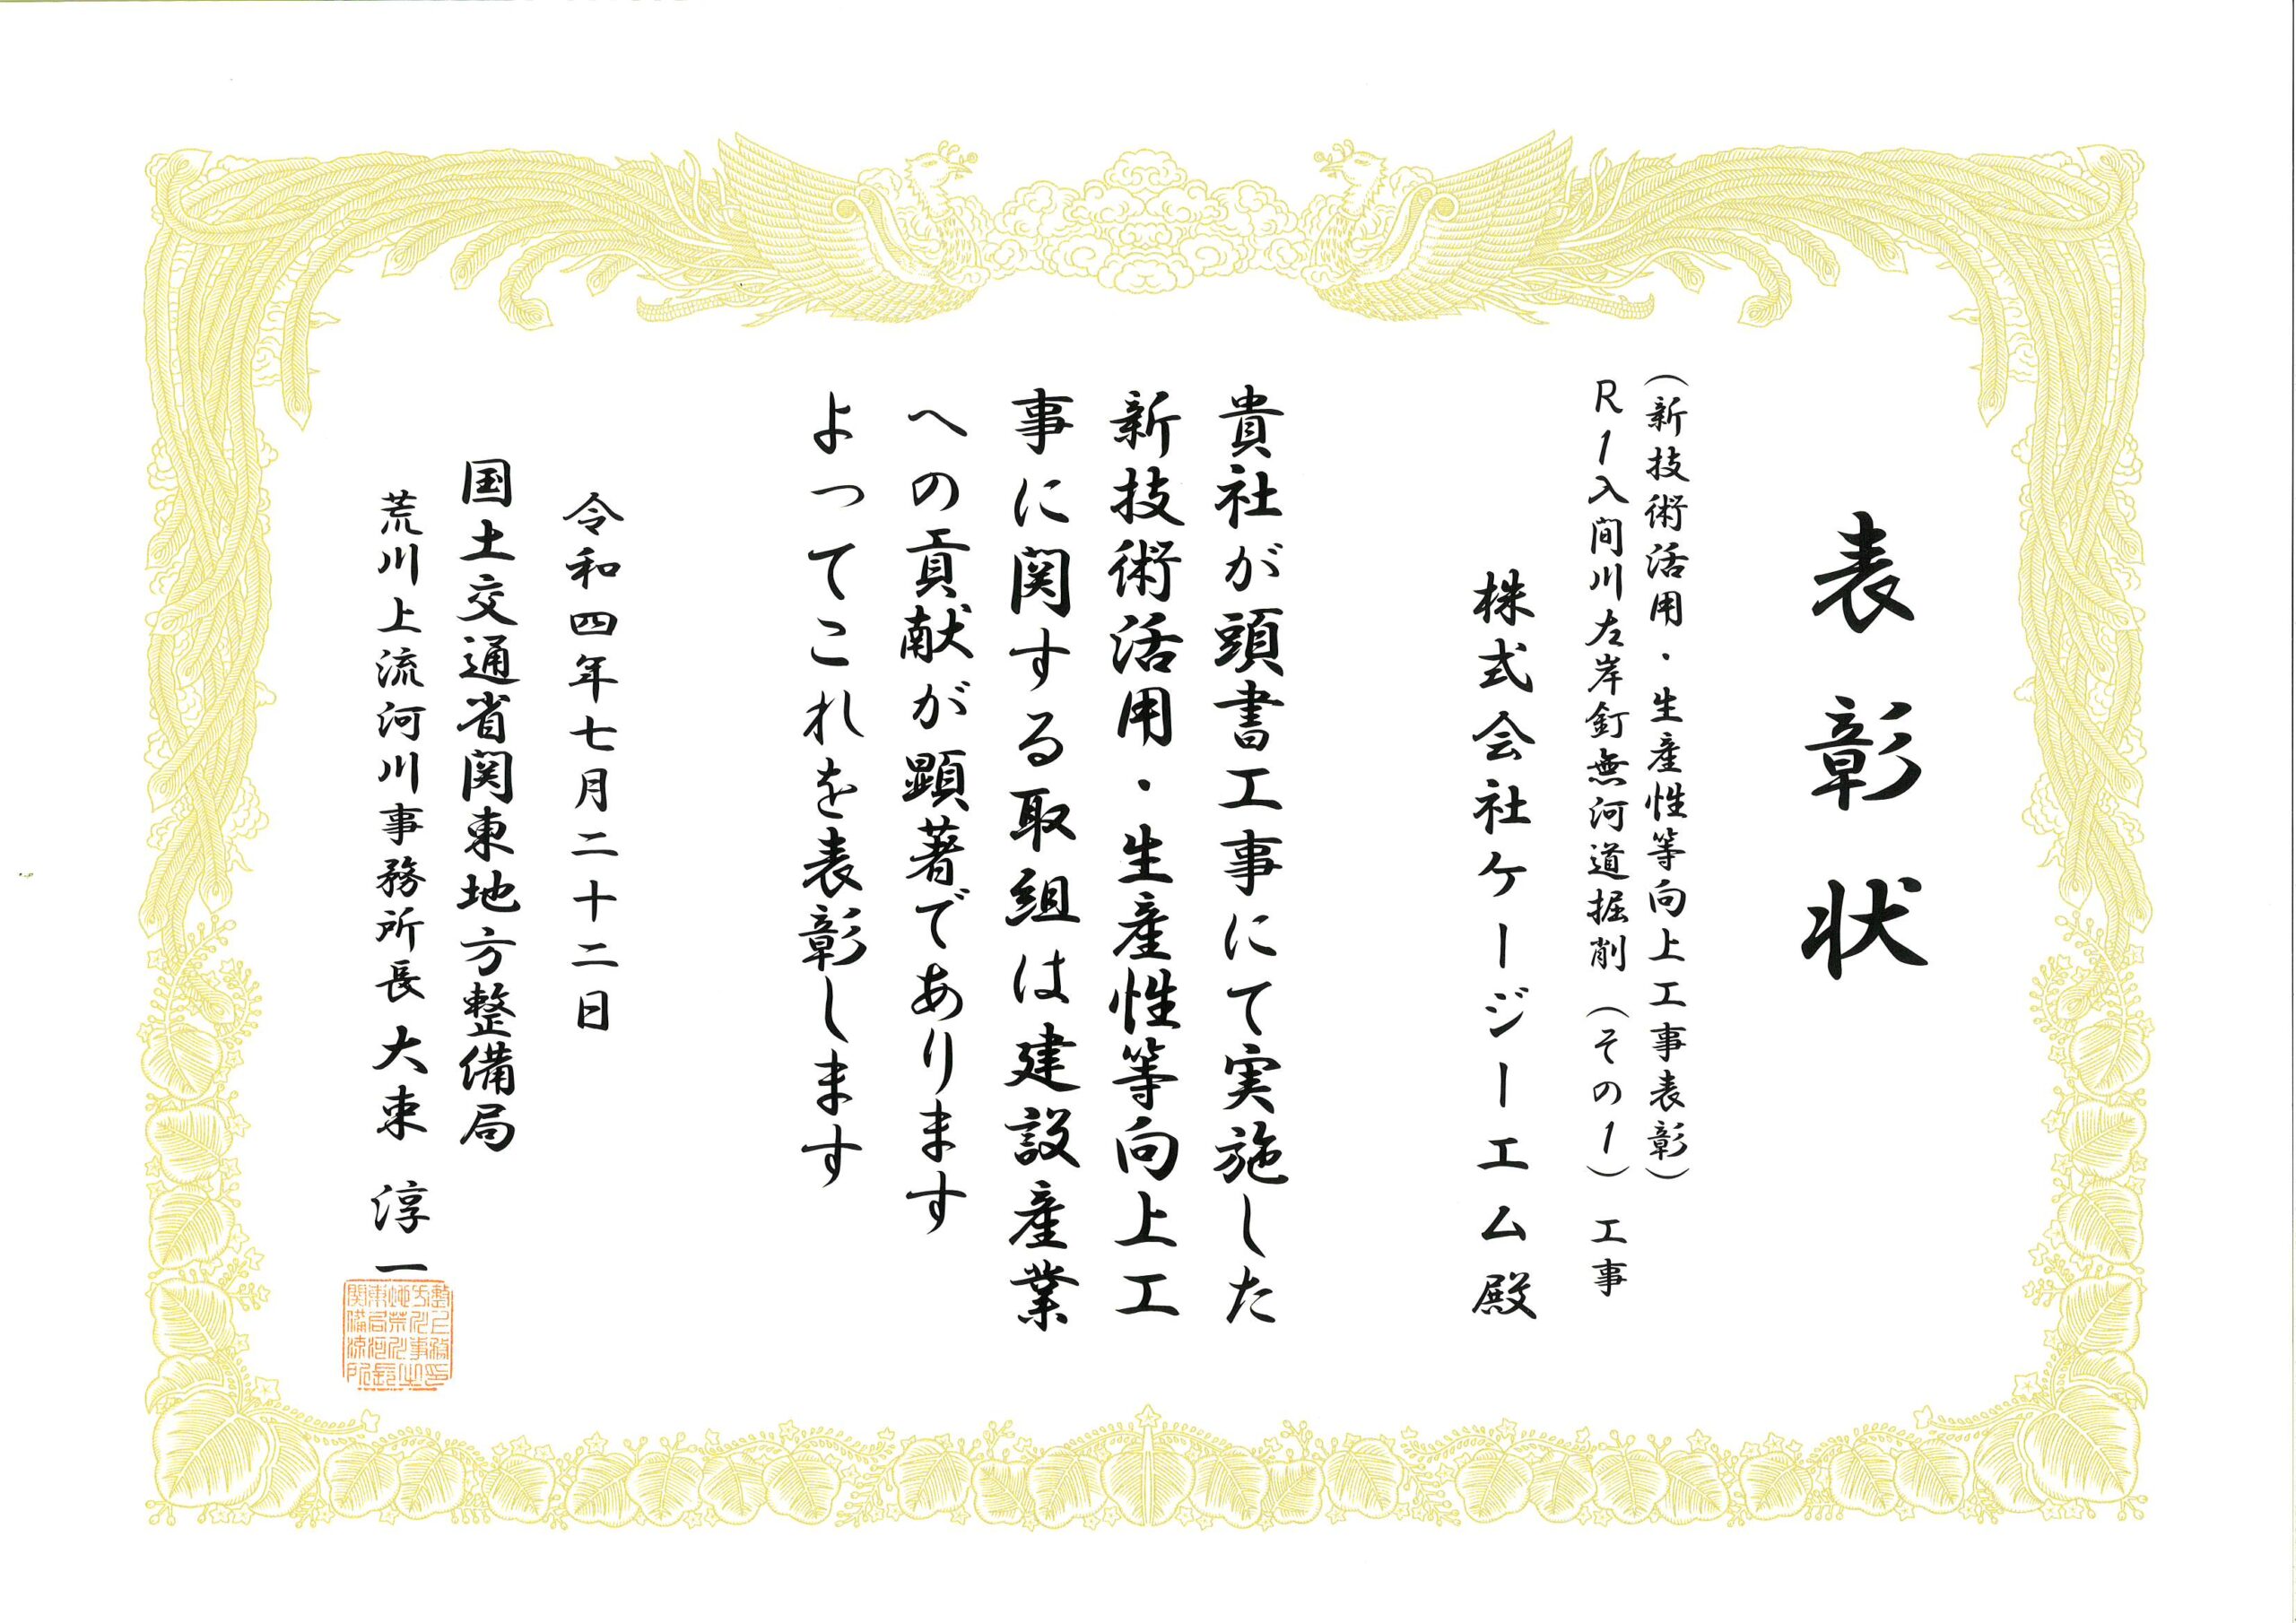 表彰状
（新技術活用・生産性等向上工事表彰）
R1入間川左岸釘無河道掘削（その1）工事
株式会社ケージーエム殿
貴社が頭書工事にて実施した
新技術活用・生産性等向上工
事に関する取組は建設産業
への貢献が顕著であります
よってこれを表彰します
令和四年七月二十二日
国土交通省関東地方整備局
荒川上流河川事務所長 大束 淳一